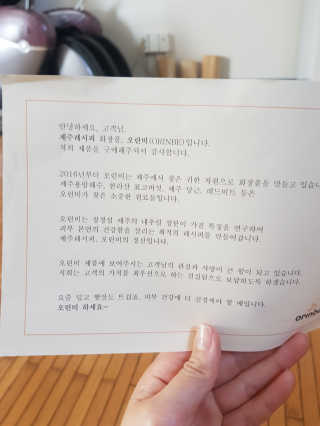 안녕하세요, 고객님.
제주레시피 화장품, 오린비(ORINBIE)입니다.
저희 제품을 구매해주셔서 감사합니다.
2016년부터 오린비는 제주에서 찾은 귀한 자원으로 화장품을 만들고 있습니
제주용암해수, 한라산 표고버섯, 제주 당근, 레드비트 등은
오린비가 찾은 소중한 원료들입니다.
오린비는 청정섬 제주의 내추럴 성분이 가진 특징을 연구하여
피부 본연의 건강함을 살리는 최적의 레시피를 만들어갑니다.
제주레시피, 오린비의 정신입니다.
오린비 제품에 보여주시는 고객님의 관심과 사랑이 큰 힘이 되고 있습니다.
저희는 고객의 가치를 최우선으로 하는 진실됨으로 보답하도록 하겠습니다.
요즘 덥고 햇살도 뜨겁죠. 피부 건강에 더 신경써야 할 때입니다.
오린비 하세요~